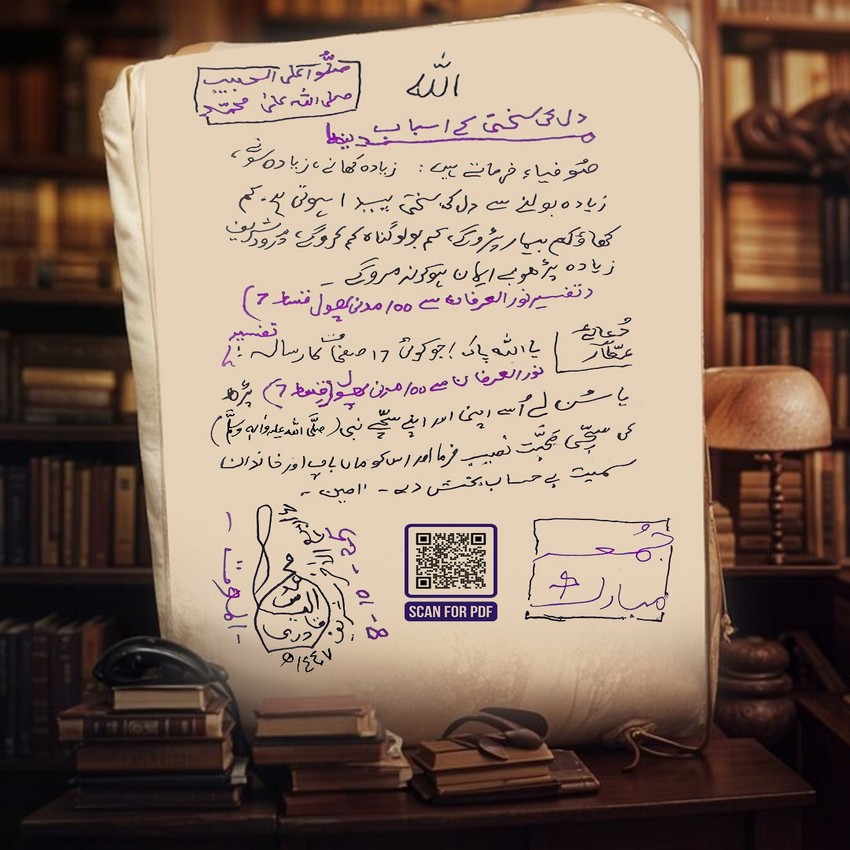 اللہ
صلّوا علی الحبیب
صلی اللہ علیٰ محمّد
دل کی سختی کے اسباب
صوفیاء فرماتے ہیں: زیادہ کھانے، زیادہ سونے،
زیادہ بولنے سے دل کی سختی پیدا ہوتی ہے۔ کم
کھاؤ کم بیمار پڑو گے، کم بولو گناہ کم کرو گے، دُرود شریف
زیادہ پڑھو بے ایمان ہو کر نہ مرو گے۔
(تفسیر نور العرفان سے 100 مدنی پھول قسط 7)
دُعائے عطّار
یا اللہ پاک! جو کوئی 17 صفحات کا رسالہ: تفسیر
نور العرفان سے 100 مدنی پھول (قسط 7) پڑھ
یا سُن لے اُسے اپنی اور اپنے سچّے نبی (صلَّی اللہ علیہ واٰلہٖ وسلَّم)
کی سچّی محبّت نصیب فرما اور اس کو ماں باپ اور خاندان
سمیت بے حساب بخش دے۔ امین۔
جُمعہ
مبارک
SCAN FOR PDF
۱۴۴۷ھ